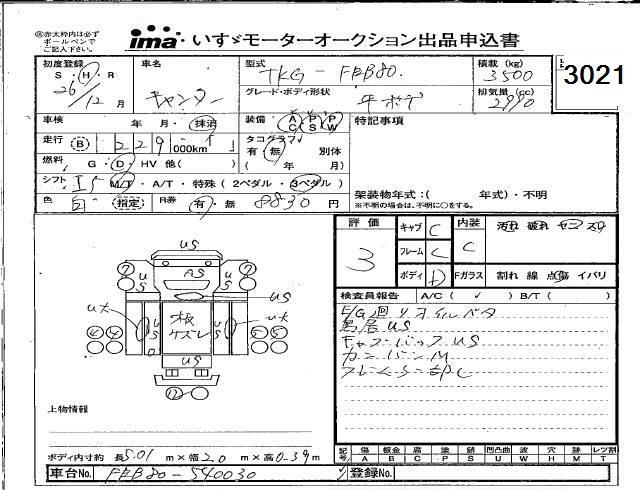 ㊟赤太枠内は必ず
ボールペンで
ご記入下さい。
ima・いすゞモーターオークション出品申込書
3021
初度登録 車名 型式 積載 (kg)
S・H・R キャンター TKG-FEB80. 3500
26/12月 グレード・ボディ形状 平ボデ 排気量(cc) 2990
車検 年・月・抹消 装備・ A P P C S W 特記事項
走行 B 229 000km タコグラフ
有・無 別体
燃料 G・D・HV 他( ) ( 年 月)
シフト M/T・A/T・特殊 (2ペダル・3ペダル) 架装物年式:( 年式)・不明
※不明の場合は、不明に○をする。
色 白 指定 R券 有・無 8830円
評価 3 キャブ C 内装 C 汚れ 破れ ヤニ スリ
フレーム C
ボディ D Fガラス 割れ 線 点傷 イバリ
検査員報告 A/C ( ✓ ) B/T ( )
E/G廻りオイルベタ
鳥居US
キャブバックUS
カンバンM
US
AS
US
板
ケズレ
US
上物情報
ボディ内寸約 長5.01m×幅2.0m×高0.39m
記号 傷 板金 腐 塗 錆 凹凸曲 波 穴 跡 レツ割
A B C P S U W H M T
車台No. FEB80-540030 登録No.